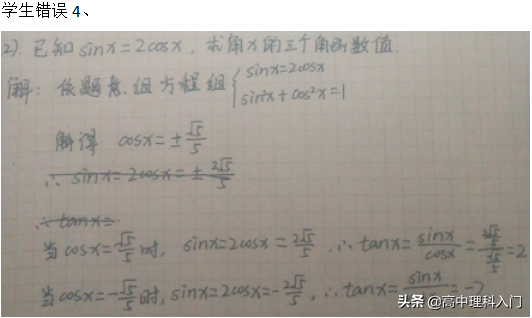 学生错误 4、
2). 已知 sinx=2cosx，求角x的三个角函数值.
解：依题意，组方程组 { sinx=2cosx
sin²x+cos²x=1
解得 cosx=±√5/5
∴ sinx=2cosx=±2√5/5
∴ tanx=
当cosx=√5/5时， sinx=2cosx=2√5/5，∴ tanx=sinx/cosx=(2√5/5)/(√5/5)=2
当cosx=-√5/5时，sinx=2cosx=-2√5/5，∴ tanx=sinx/ =-2
头条 @高中理科入门